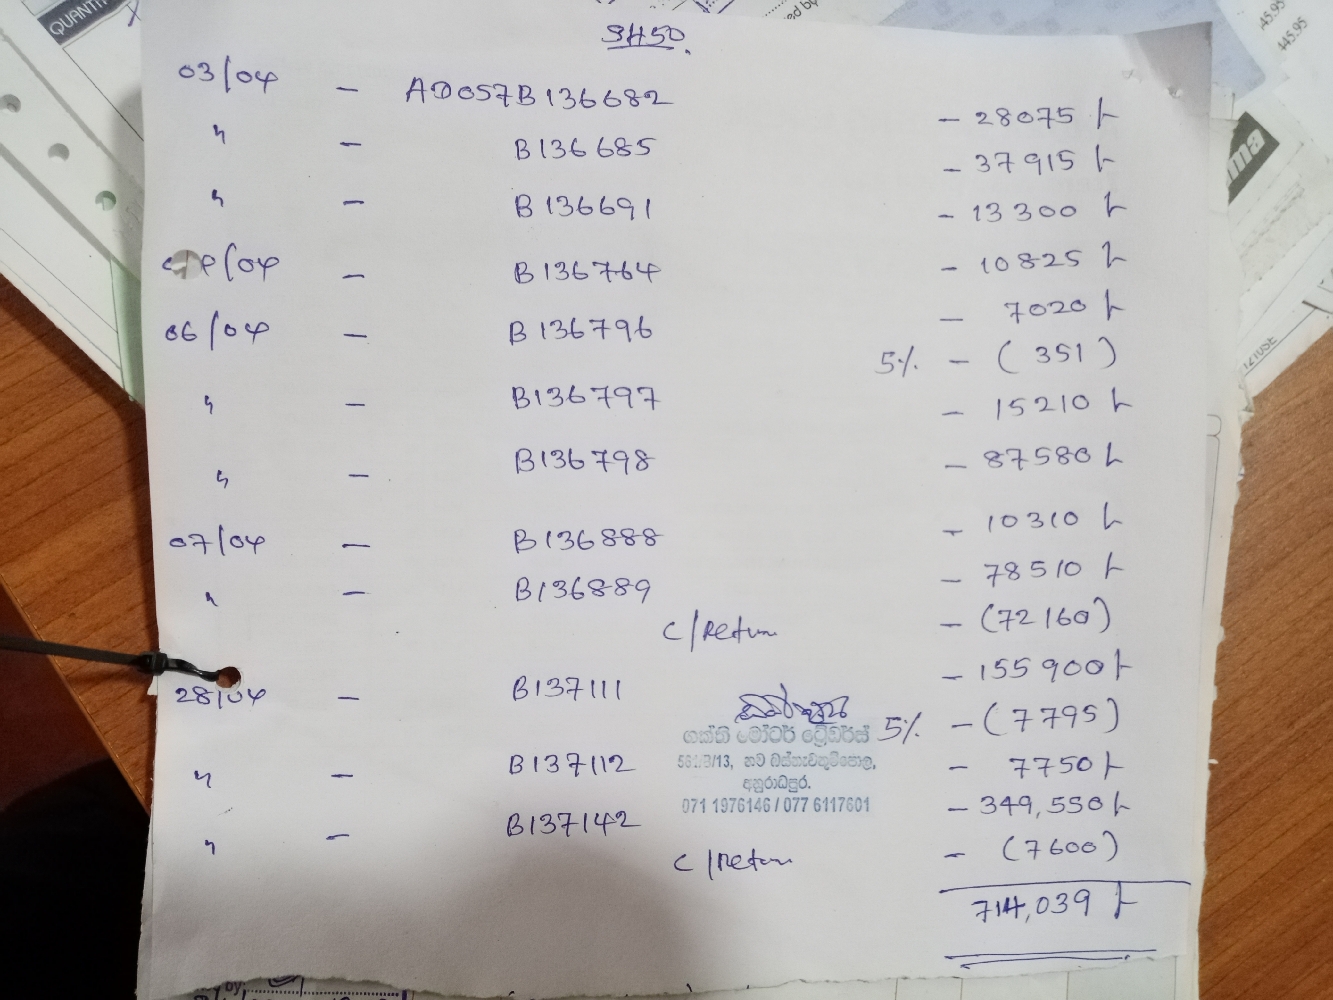 QUANTI
ed by
45.95
445.95
SH50
03/04 - AD057B136682 - 28075/-
" - B136685 - 37915/-
" - B136691 - 13300/-
/04 - B136764 - 10825/-
06/04 - B136796 - 7020/-
5% - (351)
" - B136797 - 15210/-
" - B136798 - 87580/-
07/04 - B136888 - 10310/-
" - B136889 - 78510/-
C/Return - (72160)
28/04 - B137111 - 155900/-
5% - (7795)
ශක්ති මෝටර් ට්‍රේඩර්ස්
අනුරාධපුර.
071 1976146 / 077 6117601
" - B137112 - 7750/-
" - B137142 - 349,550/-
C/Return - (7600)
714,039/-
by